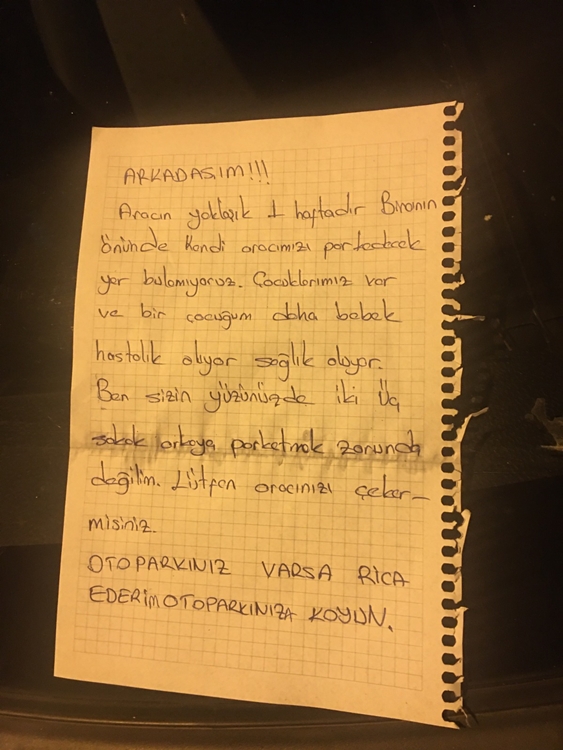 ARKADAŞIM!!!
Aracın yaklaşık 1 haftadır Binanın
önünde Kendi aracımızı parkedecek
yer bulamıyoruz. Çocuklarımız var
ve bir çocuğum daha bebek
hastalık oluyor sağlık oluyor.
Ben sizin yüzünüzde iki Üç
sokak arkaya parketmek zorunda
değilim. Lütfen aracınızı çeker-
misiniz.
OTOPARKINIZ VARSA RİCA
EDERİM OTOPARKINIZA KOYUN.